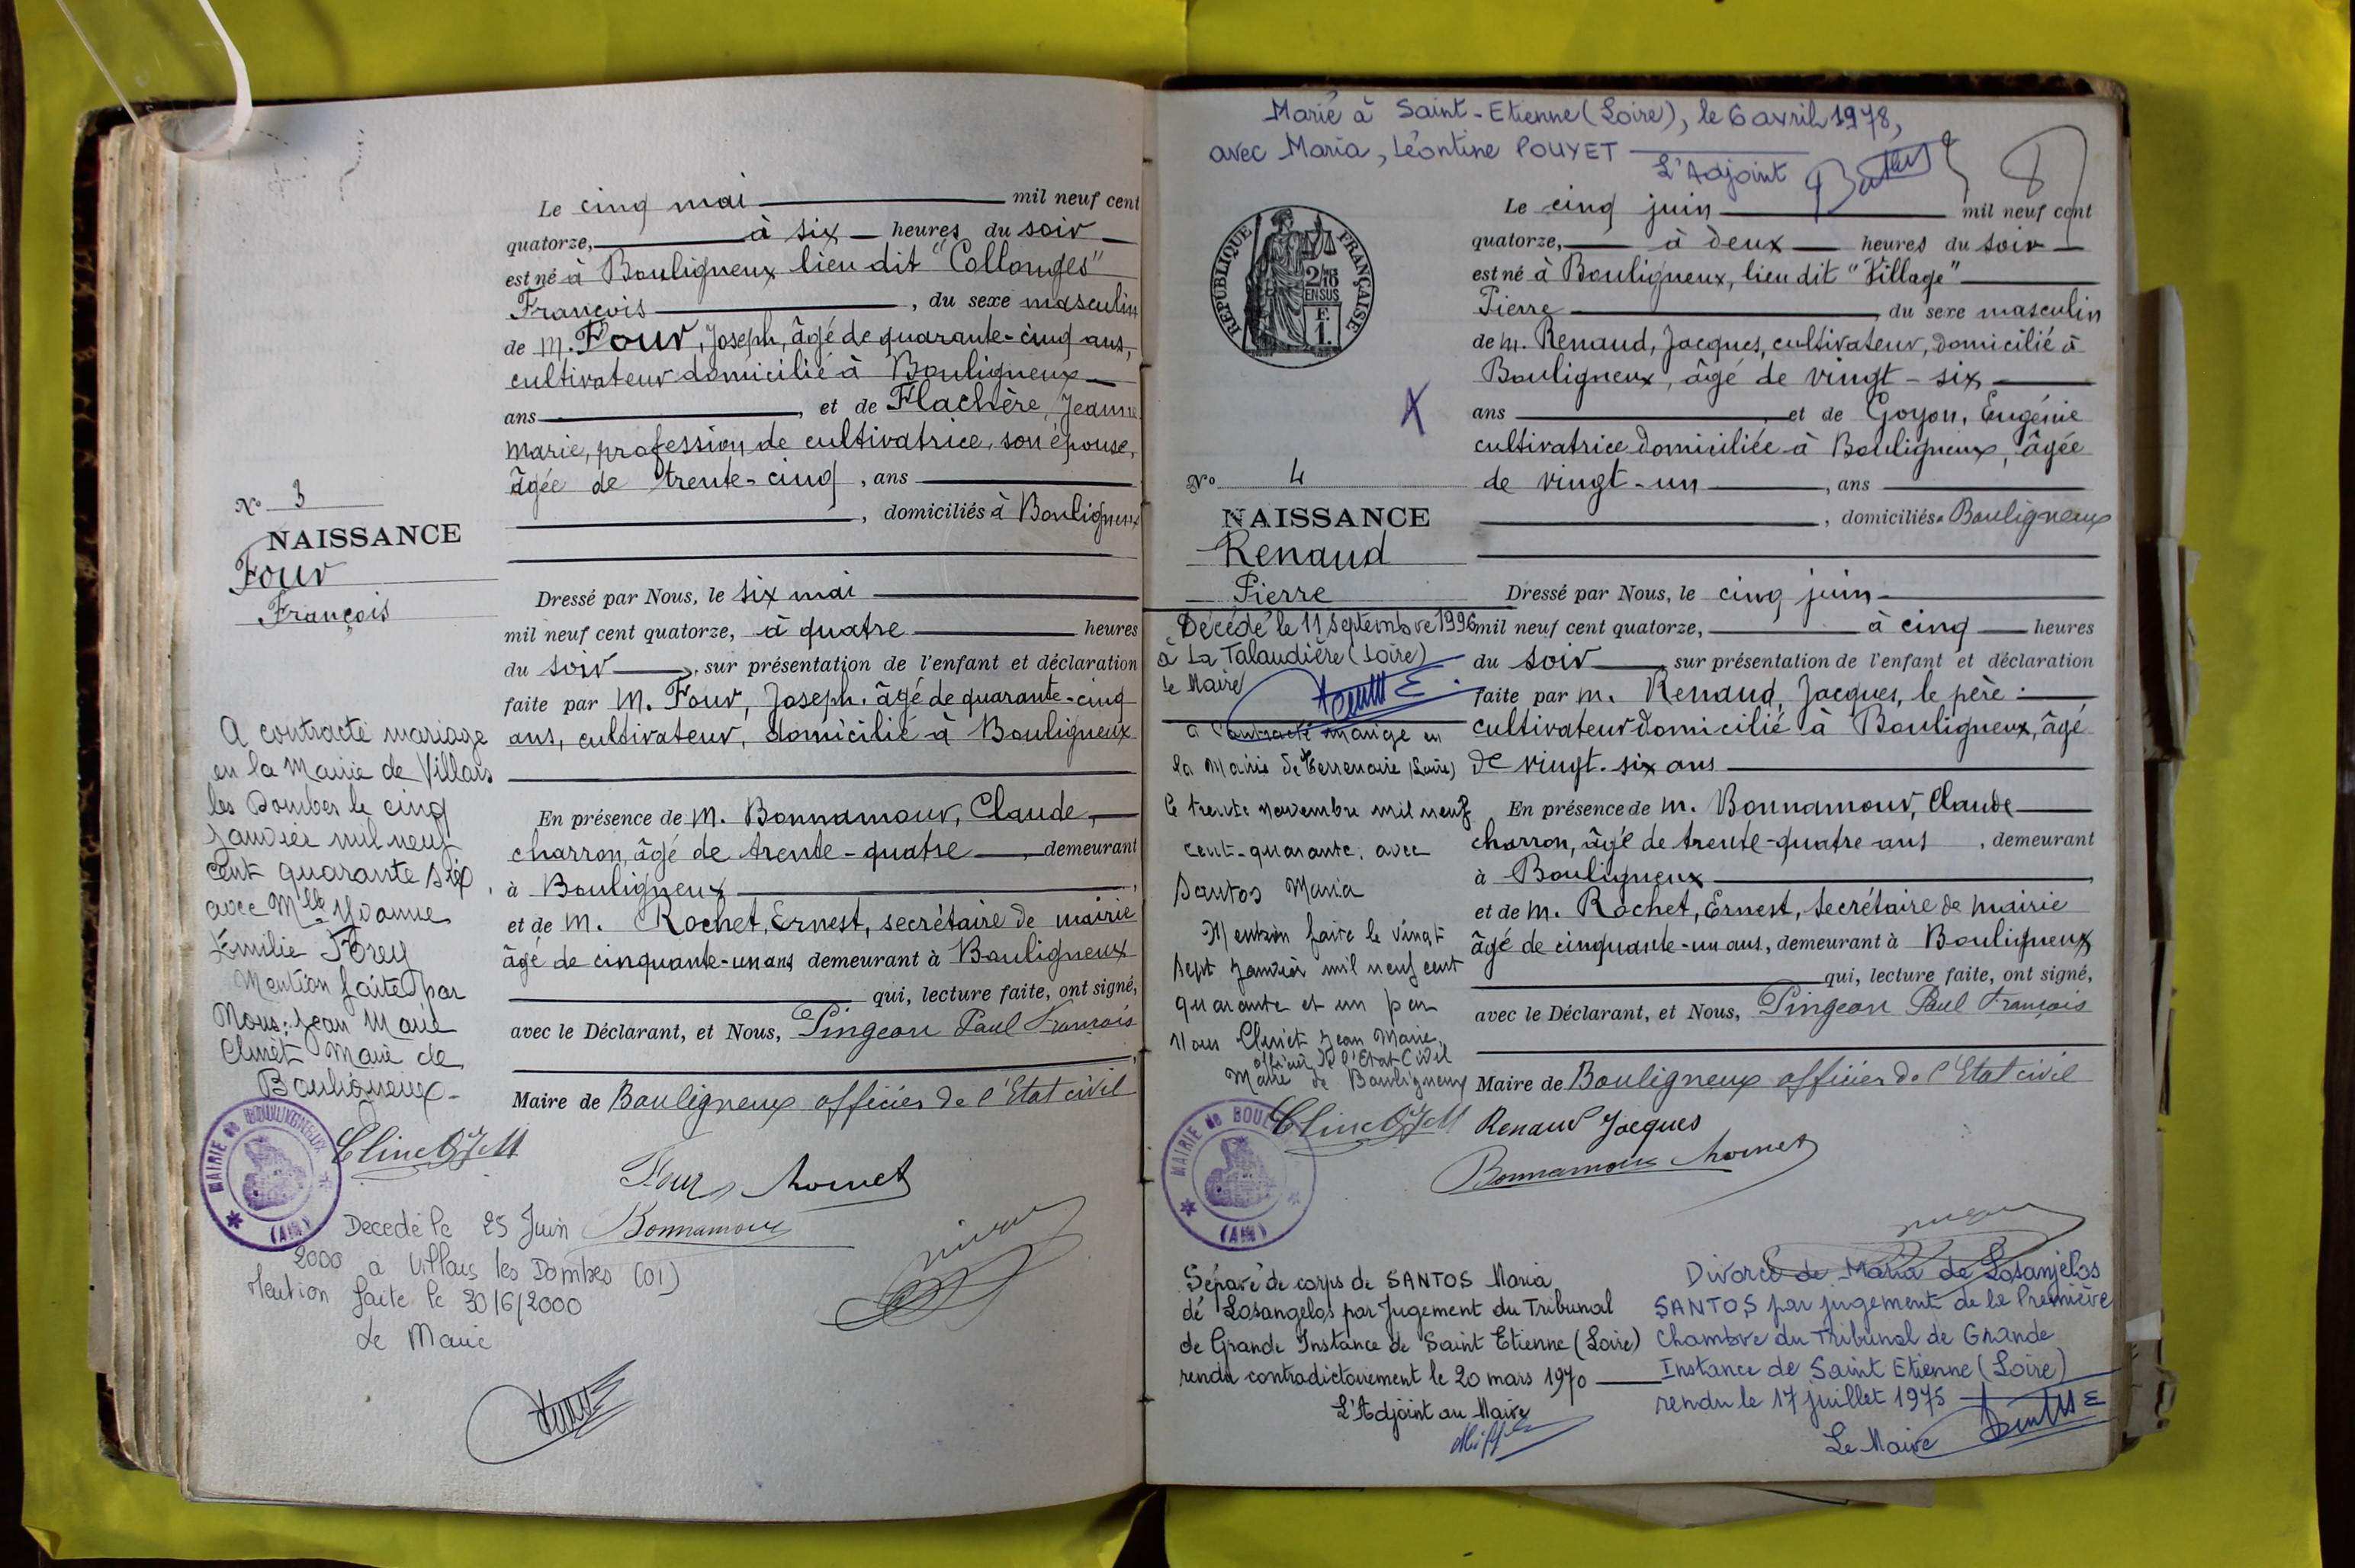 Le cinq mai mil neuf cent
quatorze, à six heures du soir
est né à Bouligneux lieu dit "Collonges"
François, du sexe masculin
de M. Four, Joseph, âgé de quarante-cinq ans,
cultivateur domicilié à Bouligneux
ans, et de Flachère, Jeanne
Marie, profession de cultivatrice, son épouse,
âgée de trente-cinq, ans
, domiciliés à Bouligneux
No 3
NAISSANCE
Four
François
Dressé par Nous, le six mai
mil neuf cent quatorze, à quatre heures
du soir, sur présentation de l'enfant et déclaration
faite par M. Four, Joseph, âgé de quarante-cinq
ans, cultivateur, domicilié à Bouligneux
En présence de M. Bonnamour, Claude,
charron, âgé de trente-quatre, demeurant
à Bouligneux,
et de M. Rochet, Ernest, secrétaire de mairie
âgé de cinquante-un ans demeurant à Bouligneux
qui, lecture faite, ont signé,
avec le Déclarant, et Nous, Pingeon Paul François
Maire de Bouligneux officier de l'Etat civil
A contracté mariage
en la Mairie de Villars
les Dombes le cinq
janvier mil neuf
cent quarante six,
avec Mlle Yvonne
Emilie Forey
Mention faite par
Nous, Jean Marie
Clinet Maire de
Bouligneux
MAIRIE de BOULIGNEUX
(AIN)
Clinet J M
Four
Bonnamour
Decedé le 25 Juin
2000 a Villars les Dombes (01)
Mention faite le 30/6/2000
Le Maire
Marié à Saint-Etienne (Loire), le 6 avril 1978,
avec Maria, Léontine POUYET
L'Adjoint
8
RÉPUBLIQUE FRANÇAISE
2/10
EN SUS
F.
1.
Le cinq juin mil neuf cent
quatorze, à deux heures du soir
est né à Bouligneux, lieu dit "Village"
Pierre du sexe masculin
de M. Renaud, Jacques, cultivateur, domicilié à
Bouligneux, âgé de vingt-six
ans, et de Goyon, Eugénie
cultivatrice domiciliée à Bouligneux, âgée
de vingt-un, ans
, domiciliés à Bouligneux
X
No 4
NAISSANCE
Renaud
Pierre
Dressé par Nous, le cinq juin
mil neuf cent quatorze, à cinq heures
du soir, sur présentation de l'enfant et déclaration
faite par M. Renaud, Jacques, le père :
cultivateur domicilié à Bouligneux, âgé
de vingt-six ans
En présence de M. Bonnamour, Claude
charron, âgé de trente-quatre ans, demeurant
à Bouligneux,
et de M. Rochet, Ernest, secrétaire de mairie
âgé de cinquante-un ans, demeurant à Bouligneux
qui, lecture faite, ont signé,
avec le Déclarant, et Nous, Pingeon Paul François
Maire de Bouligneux officier de l'Etat civil
Renaud Jacques
Bonnamour
Décédé le 11 Septembre 1996
à La Talaudière (Loire)
Le Maire
a contracté mariage en
la Mairie de Terrenoire (Loire)
le trente novembre mil neuf
cent-quarante, avec
Santos Maria
Mention faite le vingt
sept janvier mil neuf cent
quarante et un par
Nous Clinet Jean Marie,
officier de l'Etat Civil
Maire de Bouligneux
Clinet J M
MAIRIE de BOULIGNEUX
(AIN)
Séparé de corps de SANTOS Maria
de Losangelos par Jugement du Tribunal
de Grande Instance de Saint Etienne (Loire)
rendu contradictoirement le 20 mars 1970
L'Adjoint au Maire
Divorcé de Maria de Losanjelos
SANTOS par jugement de la Première
Chambre du Tribunal de Grande
Instance de Saint Etienne (Loire)
rendu le 17 juillet 1975
Le Maire